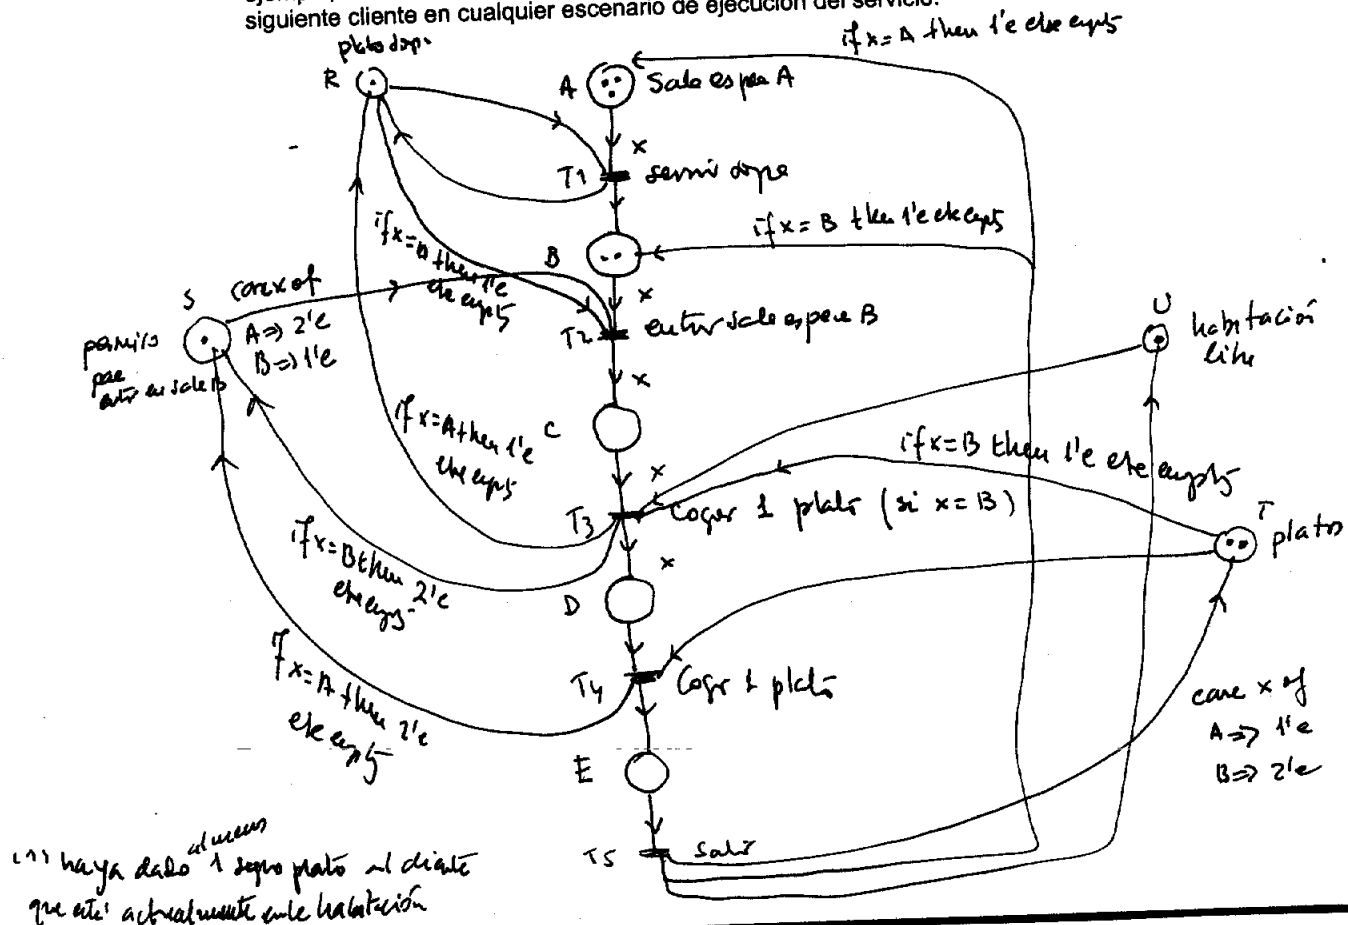 siguiente cliente en cualquier escenario de ejecución del servicio.
if x = A then 1'e else empty
plato sop.
R
A
Sala espera A
x
T1
servir sopa
if x = B then 1'e else empty
B
if x = A then 1'e
else empty
x
S
case x of
A => 2'e
B => 1'e
T2
entrar sala espera B
U
habitación
libre
permiso
para
entrar en sala B
x
C
if x = A then 1'e
else empty
if x = B then 1'e else empty
x
T3
Coger 1 plato (si x = B)
T
platos
if x = B then 2'e
else empty
x
D
T4
Coger 1 plato
if x = A then 2'e
else empty
case x of
A => 1'e
B => 2'e
E
T5
Salir
al menos
haya dado 1 plato al cliente
que está actualmente en la habitación